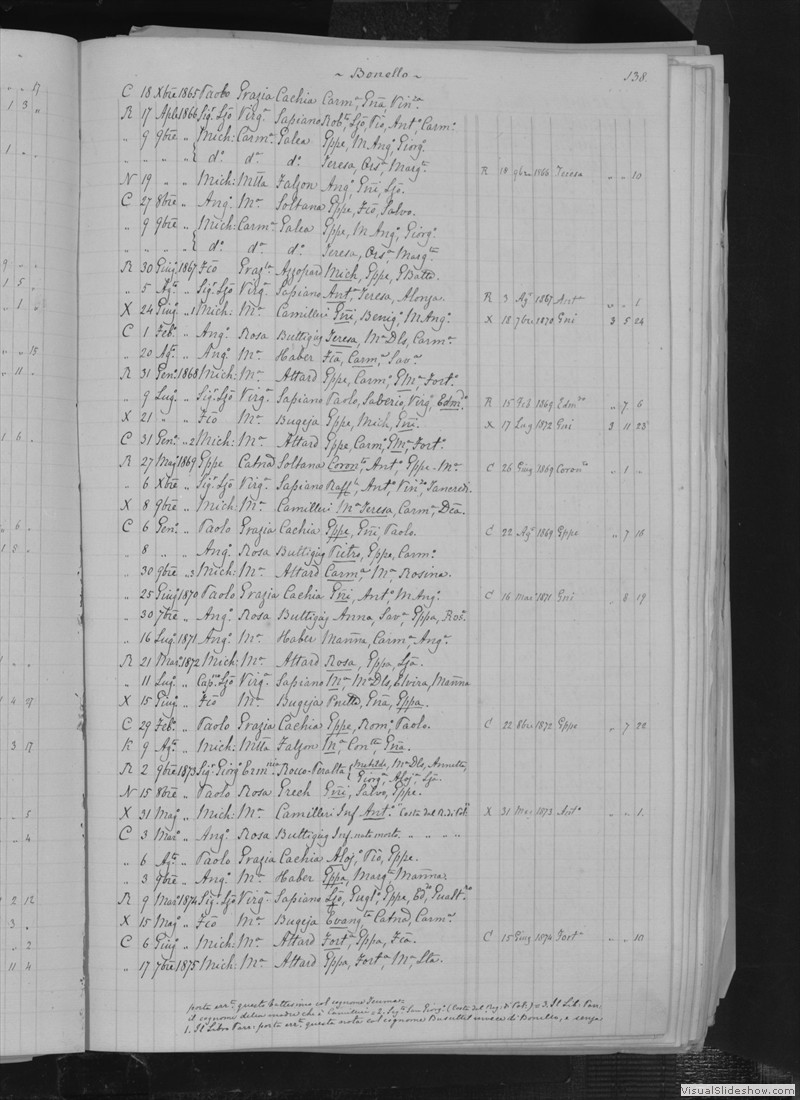 ~ Bonello ~ 138
C 18 Xbre 1865 Paolo Grazia Cachia Carmª, Gña, Vinzª.
R 17 Aple 1866 Sigr. Ljo Virgª Sapiano Robto, Ljo, Pio, Antº, Carmº.
" 9 9bre " Mich: Carmª. Galea Gppe, M Angº, Giorgº.
" " " " { dº. dº. dº. Teresa, Orsª, Margtª. R 18 9bre 1866 Teresa " " 10
N 19 " " Mich: Mtta Falzon Angº, Gñi, Ljo.
C 27 8bre " Angº. Mª. Soltana Gppe, Fco, Salvo.
" 9 9bre " Mich: Carmª. Galea Gppe, M Angº, Giorgº.
" " " " { dº. dº. dº. Teresa, Orsª Margtª
R 30 Giugº 1867 Fco Grazª. Azzopard Mich, Gppe, GBatta.
" 5 Agtº " Sigr. Ljo Virgª. Sapiano Antª, Teresa, Alonza. R 3 Agº 1867 Antª " " 1
X 24 Giugº " 1 Mich: Mª. Camilleri Gñi, Benigº, M Angº. X 18 7bre 1870 Gñi 3 5 24
C 1 Febº. " Angº. Rosa Buttigieg Teresa, Mª Dls, Carmª.
" 20 Agº. " Angº Mª. Haber Fca, Carmª, Savª.
R 31 Genº. 1868 Mich: Mª. Attard Gppe, Carmº, GMª, Fortº.
" 9 Lugº. " Sigr. Ljo Virgª. Sapiano Paolo, Saverio, Virgº, Edmdº. R 15 Feb 1869 Edmdº " 7 6
X 21 " " Fco Mª. Bugeja Gppe, Mich, Gñi. X 17 Lug 1872 Gñi 3 11 23
C 31 Genº. " 2 Mich: Mª. Attard Gppe, Carmº, GMª, Fortº.
R 27 Magº 1869 Gppe Catnª Soltana Coronta, Antª, Gppe. Mª. C 26 Giug 1869 Coronta " 1 "
" 6 Xbre " Sigr. Ljo Virgª. Sapiano Raffle, Antº, Vinzº, Tancredi.
X 8 9bre " Mich: Mª. Camilleri Mª Teresa, Carmª, Dca.
C 6 Genº. " Paolo Grazia Cachia Gppe, Gñi, Paolo. C 22 Agº 1869 Gppe " 7 16
" 8 " " Angº. Rosa Buttigieg Pietro, Gppe, Carmº.
" 30 9bre " 3 Mich: Mª. Attard Carmª, Mª Rosina.
" 25 Giugº 1870 Paolo Grazia Cachia Gñi, Antº, M Angº. C 16 Mar 1871 Gñi " 8 19
" 30 7bre " Angº. Rosa Buttigieg Anna, Savª, Gppa, Rosª.
" 16 Lugº 1871 Angº. Mª. Haber Marñna, Carmª, Angª.
R 21 Marº 1872 Mich: Mª. Attard Rosa, Gppa, Lja.
" 11 Lugº. " Capº. Ljo Virgª. Sapiano Mª, Mª Dls, Elvira, Marñna
X 15 Giugº " Fco Mª. Bugeja Gña, Gppa.
C 29 Febº. " Paolo Grazia Cachia Gppe, Romº, Paolo. C 22 8bre 1872 Gppe " 7 22
R 9 Agtº. " Mich: Mtta Falzon Mª, Contta, Gña.
R 2 9bre 1873 Sigr. Giorgº Ermnia Rocco-Peralta { Matilde, Mª Dls, Annetta,
Giorgª, Alojª, Lja.
N 15 8bre " Paolo Rosa Grech Gñi, Salvo, Gppe.
X 31 Magº " Mich: Mª. Camilleri Inf Antº. X 31 Mag 1873 Antº " " 1.
C 3 Marº " Angº. Rosa Buttigieg Inf. nato morto. " " " "
" 6 Agtº " Paolo Grazia Cachia Alojº, Pio, Gppe.
" 3 9bre " Angº. Mª. Haber Gppa, Margtª Marñna.
R 9 Marº 1874 Sigr. Ljo Virgª. Sapiano Ljo, Guglº, Gppe, Eddº, Gualtrº
X 15 Magº " Fco Mª. Bugeja Evangta Catnª, Carmª.
C 6 Giugº " Mich: Mª. Attard Fortª, Gppa, Fca. C 15 Giug 1874 Fortª " " 10
" 17 7bre 1875 Mich: Mª. Attard Gppa, Fortª, Mª Lta.
porta errª questo battesimo col cognome
il cognome della madre che è Camilleri = 2. = 3. Il Lib. Parr:
1. Il Libro Parr: porta errª questa nota col cognome invece di Bonello, e senza
VisualSlideshow.com